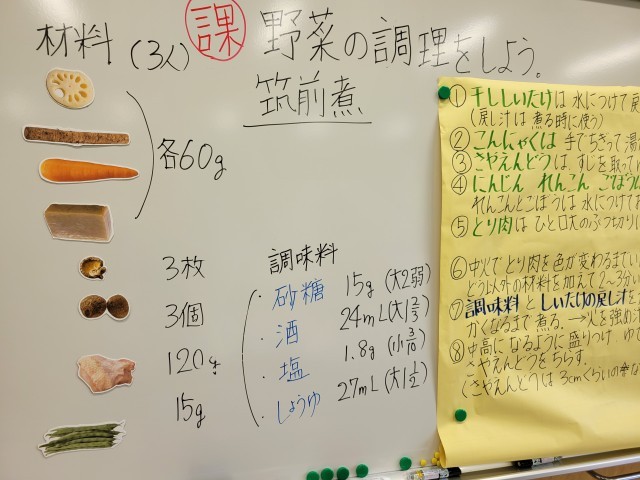 材料(3人) 課 野菜の調理をしよう。
筑前煮
各60g
3枚
3個
120g
15g
調味料
・砂糖 15g (大2弱)
・酒 24mL (大1 3/5)
・塩 1.8g (小3/10)
・しょうゆ 27mL (大1 1/2)
①干ししいたけは 水につけて戻
(戻し汁は 煮る時に使う)
②こんにゃくは 手でちぎって 湯
③さやえんどうは、すじを取って
④にんじん れんこん ごぼう
れんこんとごぼうは 水につけて
⑤とり肉は ひと口大のぶつ切り
⑥中火で とり肉を色が変わるまでい
どう以外の材料を加えて 2~3分い
⑦調味料としいたけの戻し汁
なるまで煮る。→火を強め
⑧中高になるように 盛りつけ ゆで
さやえんどうをちらす。
(さやえんどうは 3cmくらいの